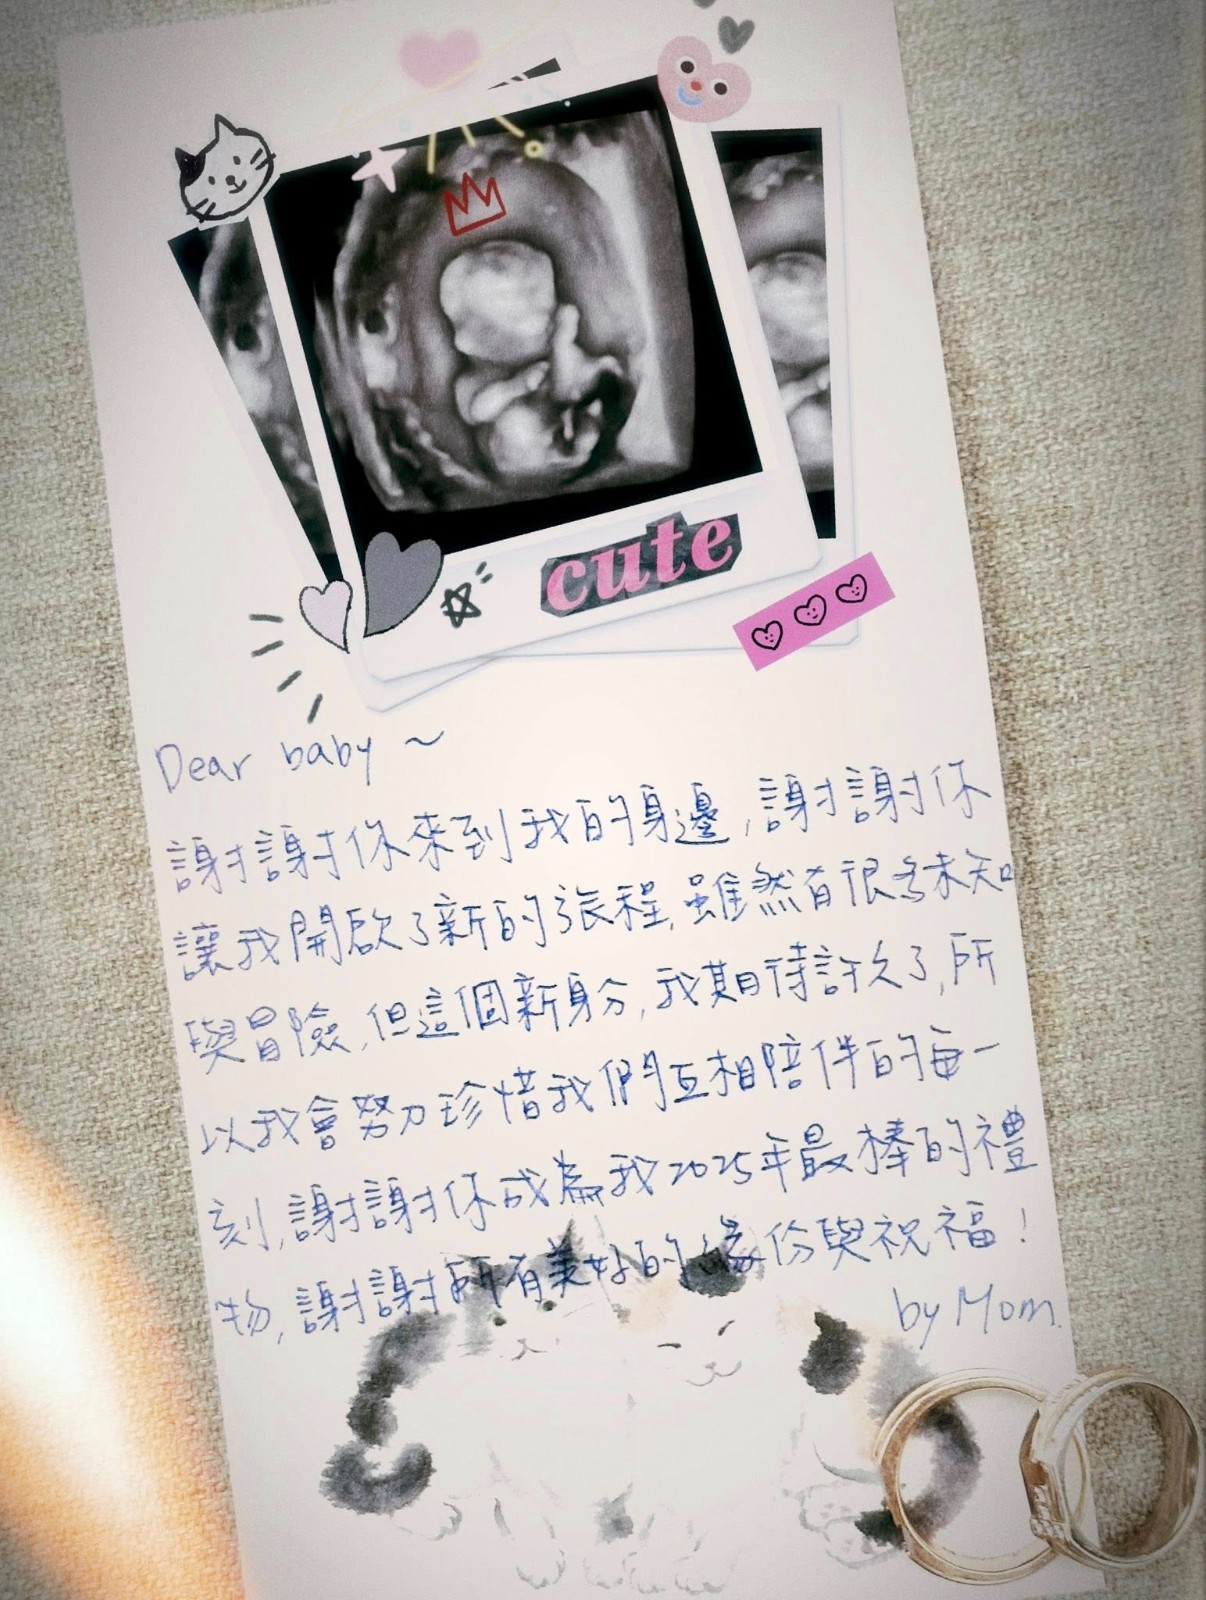 cute
Dear baby ~
謝謝你來到我的身邊,謝謝你
讓我開啟了新的旅程,雖然有很多未知
與冒險,但這個新身分,我期待許久了,所
以我會努力珍惜我們互相陪伴的每一
刻,謝謝你成為我2025年最棒的禮
物,謝謝所有美好的緣份與祝福!
by Mom.